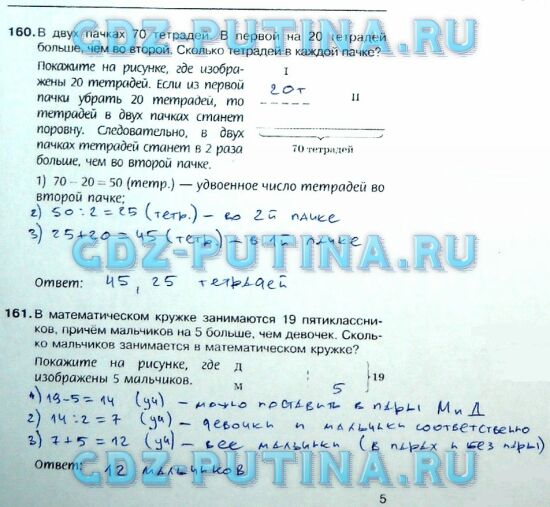 GDZ-PUTINA.RU
160. В двух пачках 70 тетрадей. В первой на 20 тетрадей
больше, чем во второй. Сколько тетрадей в каждой пачке?
Покажите на рисунке, где изобра-
жены 20 тетрадей. Если из первой
пачки убрать 20 тетрадей, то
тетрадей в двух пачках станет
поровну. Следовательно, в двух
пачках тетрадей станет в 2 раза
больше, чем во второй пачке.
I
20т
II
70 тетрадей
GDZ-PUTINA.RU
1) 70 – 20 = 50 (тетр.) — удвоенное число тетрадей во
второй пачке;
2) 50 : 2 = 25 (тетр.) – во 2й пачке
3) 25 + 20 = 45 (тетр) – в 1й пачке
GDZ-PUTINA.RU
Ответ: 45, 25 тетрадей
161. В математическом кружке занимаются 19 пятиклассни-
ков, причём мальчиков на 5 больше, чем девочек. Сколь-
ко мальчиков занимается в математическом кружке?
GDZ-PUTINA.RU
Покажите на рисунке, где
изображены 5 мальчиков.
Д
М
5
19
1) 19-5=14 (уч) – можно поставить в пары М и Д
2) 14:2=7 (уч) – девочки и мальчики соответственно
3) 7+5=12 (уч) – все мальчики (в парах и без пары)
Ответ: 12 мальчиков
GDZ-PUTINA.RU
5